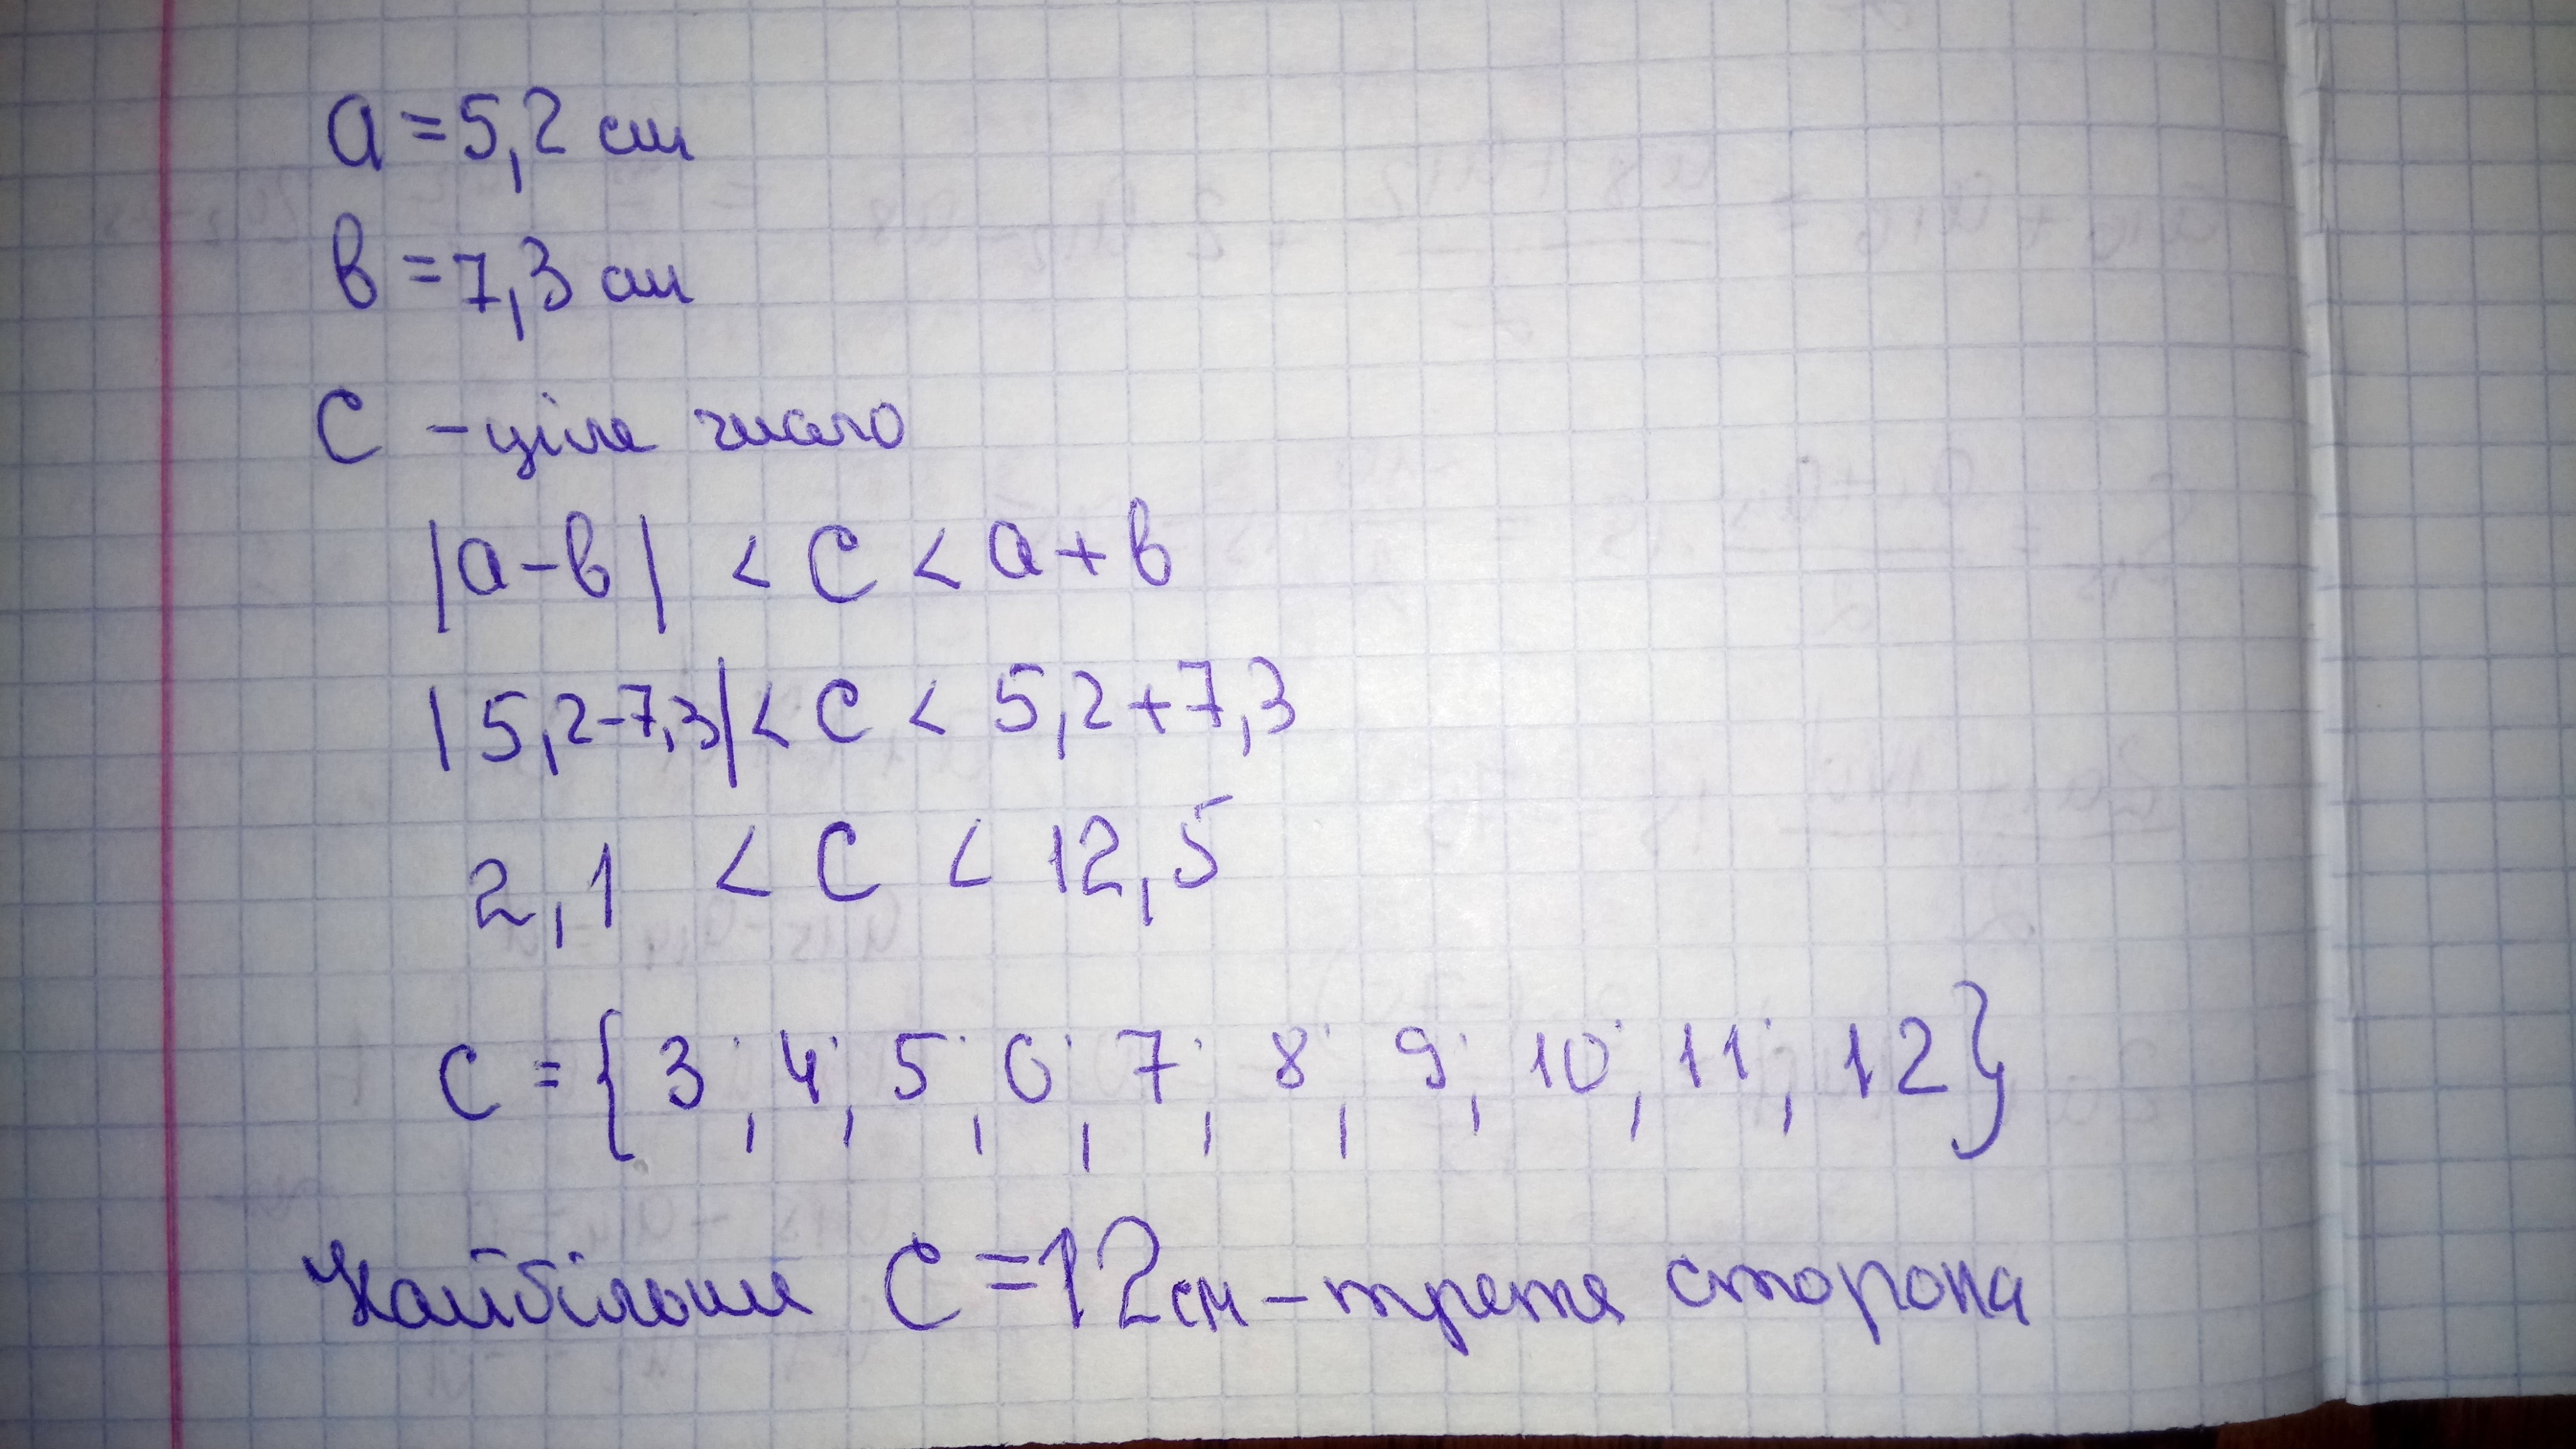 a = 5,2 см
в = 7,3 см
c - ціле число
|a-в| < c < a+в
|5,2-7,3| < c < 5,2+7,3
2,1 < c < 12,5
c = {3; 4; 5; 6; 7; 8; 9; 10; 11; 12}
Найбільше c = 12 см - третя сторона